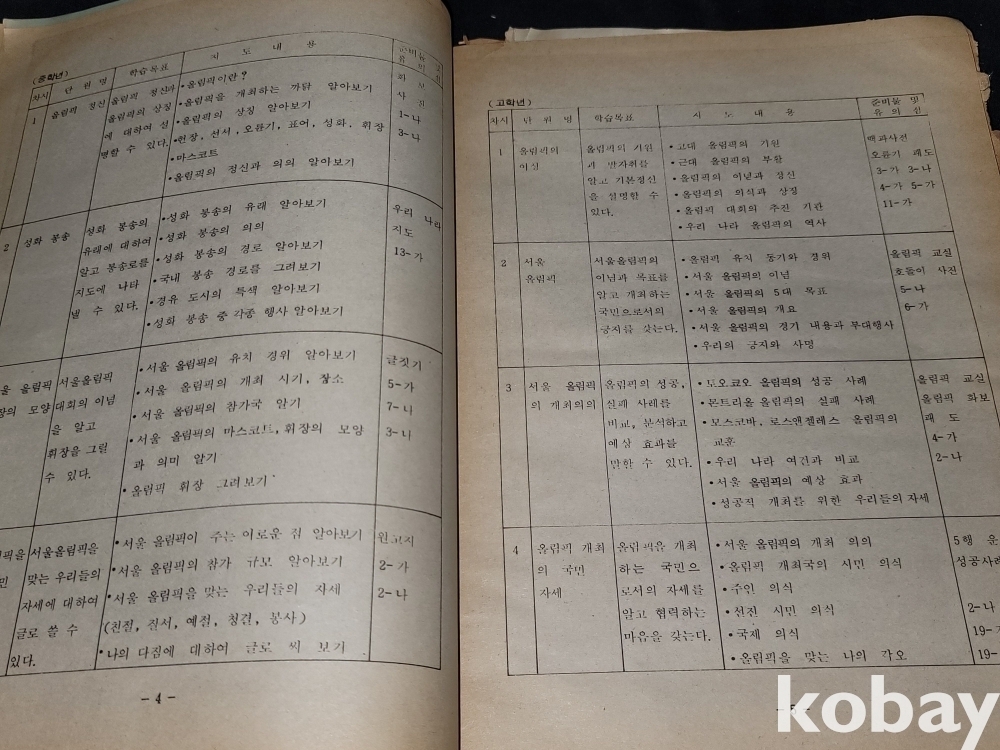 (중학년)
차시 단원명 학습목표 지도내용 준비물 및
1 올림픽 정신 올림픽 정신과 •올림픽이란? 화보
올림픽의 상징 •올림픽을 개최하는 까닭 알아보기 사진
에 대하여 설 •올림픽의 상징 알아보기 1-나
명할 수 있다. •헌장, 선서, 오륜기, 표어, 성화, 휘장 3-나
•마스코트
•올림픽의 정신과 의의 알아보기
2 성화 봉송 성화 봉송의 •성화 봉송의 유래 알아보기 우리 나라
유래에 대하여 •성화 봉송의 의의 지도
알고 봉송로를 •성화 봉송의 경로 알아보기 13-가
지도에 나타 •국내 봉송 경로를 그려보기
낼 수 있다. •경유 도시의 특색 알아보기
•성화 봉송 중 각종 행사 알아보기
울 올림픽 서울올림픽 •서울 올림픽의 유치 경위 알아보기 글짓기
장의 모양 대회의 이념 •서울 올림픽의 개최 시기, 장소 5-가
을 알고 •서울 올림픽의 참가국 알기 7-니
휘장을 그릴 •서울 올림픽의 마스코트, 휘장의 모양 3-니
수 있다. 과 의미 알기
•올림픽 휘장 그려보기
픽을 서울올림픽을 •서울 올림픽이 주는 이로운 점 알아보기 원고지
민 맞는 우리들의 •서울 올림픽의 참가 규모 알아보기 2-가
자세에 대하여 •서울 올림픽을 맞는 우리들의 자세 2-나
글로 쓸 수 (친절, 질서, 예절, 청결, 봉사)
있다. •나의 다짐에 대하여 글로 써 보기
- 4 -
(고학년)
차시 단원명 학습목표 지도내용 준비물 및
유의점
1 올림픽의 올림픽의 기원 •고대 올림픽의 기원 백과사전
이상 과 발자취를 •근대 올림픽의 부활 오륜기 괘도
알고 기본정신 •올림픽의 이념과 정신 3-가 3-나
을 설명할 수 •올림픽의 의식과 상징 4-가 5-가
있다. •올림픽 대회의 추진 기관 11-가
•우리 나라 올림픽의 역사
2 서울 서울올림픽의 •올림픽 유치 동기와 경위 올림픽 교실
올림픽 이념과 목표를 •서울 올림픽의 이념 호돌이 사진
알고 개최하는 •서울 올림픽의 5대 목표 5-나
국민으로서의 •서울 올림픽의 개요 6-가
긍지를 갖는다. •서울 올림픽의 경기 내용과 부대행사
•우리의 긍지와 사명
3 서울 올림픽 올림픽의 성공, •도오쿄오 올림픽의 성공 사례 올림픽 교실
의 개최의의 실패 사례를 •몬트리올 올림픽의 실패 사례 올림픽 화보
비교, 분석하고 •모스코바, 로스앤젤레스 올림픽의 괘도
예상 효과를 교훈 4-가
말할 수 있다. •우리 나라 여건과 비교 2-나
•서울 올림픽의 예상 효과
•성공적 개최를 위한 우리들의 자세
4 올림픽 개최 올림픽을 개최 •서울 올림픽의 개최 의의 5행 운
의 국민 하는 국민으 •올림픽 개최국의 시민 의식 성공사례
자세 로서의 자세를 •주인 의식
알고 협력하는 •선진 시민 의식 2-나
마음을 갖는다. •국제 의식 19-가
•올림픽을 맞는 나의 각오 19-
kobay